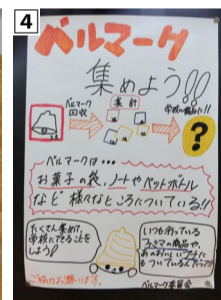 4
ベルマーク
集めよう!!
ベルマーク
回収
集計
学校の備品に!!
?
ベルマークは・・・
お菓子の袋、ノートやペットボトル
など様々なところについている!!
たくさん集めて、
学校にできることを
しよう!
いつも売っている
ファミマの商品や、
あのおいしいプリンに
もついているんだって!!
ご協力お願いします。
ベルマーク委員会